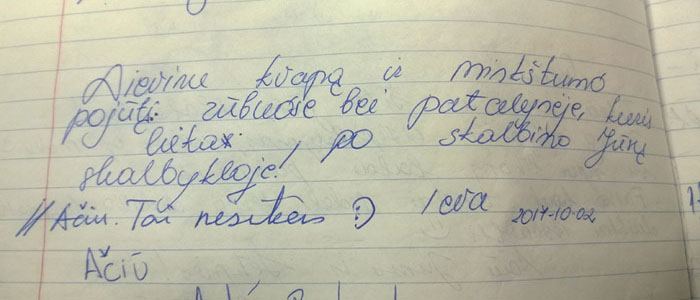 Dievinu kvapą ir minkštumo
pojūtį rūbuose bei patalynėje, kuris
lieka, po skalbimo Jūsų
skalbykloje!
// Ačiū. Tai nesitikės :) Ieva 2017-10-02
AČIŪ